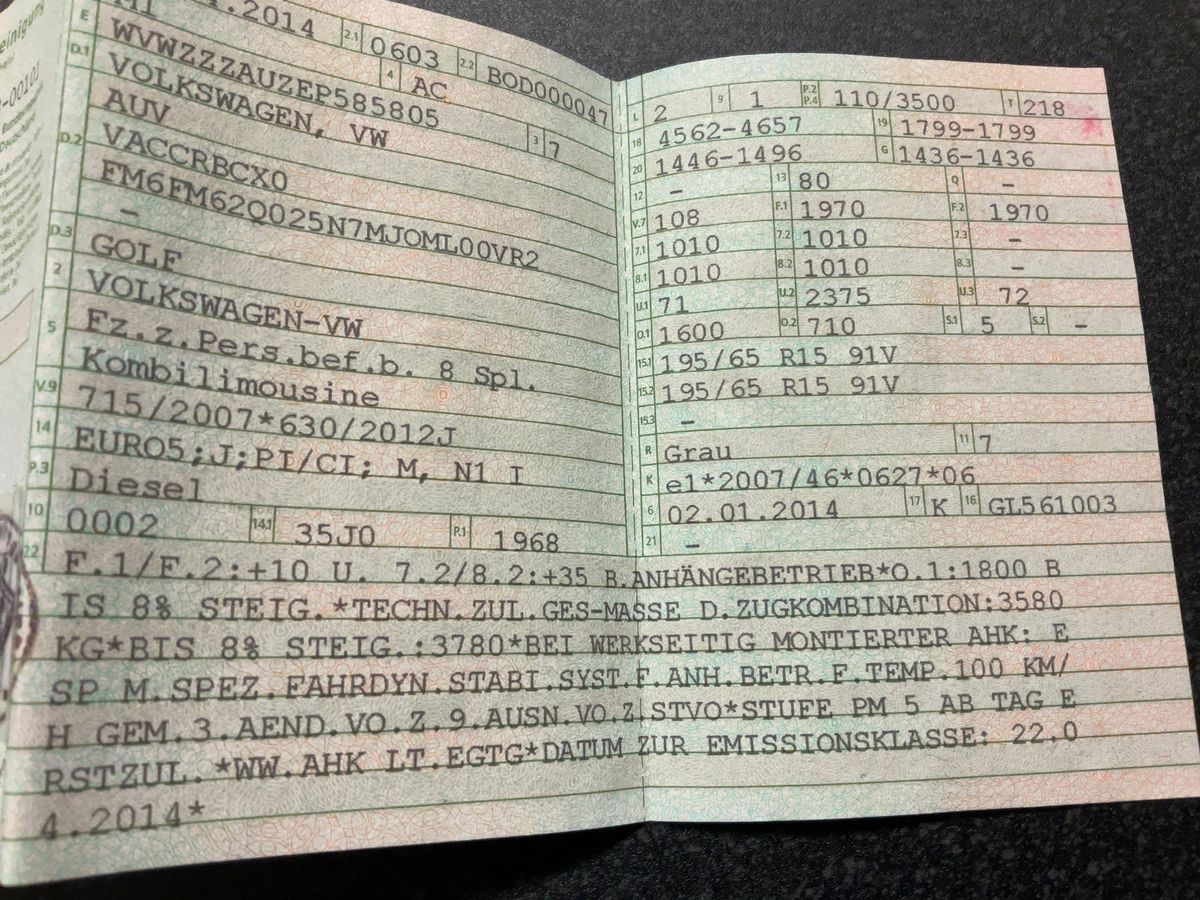 .2014 2.1 0603 2.2 BOD000047
E WVWZZZAUZEP585805
D.1 VOLKSWAGEN, VW 4 AC 3 7
AUV
D.2 VACCRBCX0
FM6FM62Q025N7MJOML00VR2
–
D.3 GOLF
2 VOLKSWAGEN-VW
5 Fz.z.Pers.bef.b. 8 Spl.
Kombilimousine
V.9 715/2007*630/2012J
14 EURO5;J;PI/CI; M, N1 I
P.3 Diesel
10 0002 14.1 35J0 P.1 1968
L 2 9 1 P.2 P.4 110/3500 T 218
18 4562-4657 19 1799-1799
20 1446-1496 G 1436-1436
12 – 13 80 Q –
V.7 108 F.1 1970 F.2 1970
7.1 1010 7.2 1010 7.3 –
8.1 1010 8.2 1010 8.3 –
U.1 71 U.2 2375 U.3 72
O.1 1600 O.2 710 S.1 5 S.2 –
15.1 195/65 R15 91V
15.2 195/65 R15 91V
15.3 –
R Grau 11 7
K e1*2007/46*0627*06
6 02.01.2014 17 K 16 GL561003
21 –
22 F.1/F.2:+10 U. 7.2/8.2:+35 B.ANHÄNGEBETRIEB*O.1:1800 B
IS 8% STEIG.*TECHN.ZUL.GES-MASSE D.ZUGKOMBINATION:3580
KG*BIS 8% STEIG.:3780*BEI WERKSEITIG MONTIERTER AHK: E
SP M.SPEZ.FAHRDYN.STABI.SYST.F.ANH.BETR.F.TEMP.100 KM/
H GEM.3.AEND.VO.Z.9.AUSN.VO.Z.STVO*STUFE PM 5 AB TAG E
RSTZUL.*WW.AHK LT.EGTG*DATUM ZUR EMISSIONSKLASSE: 22.0
4.2014*